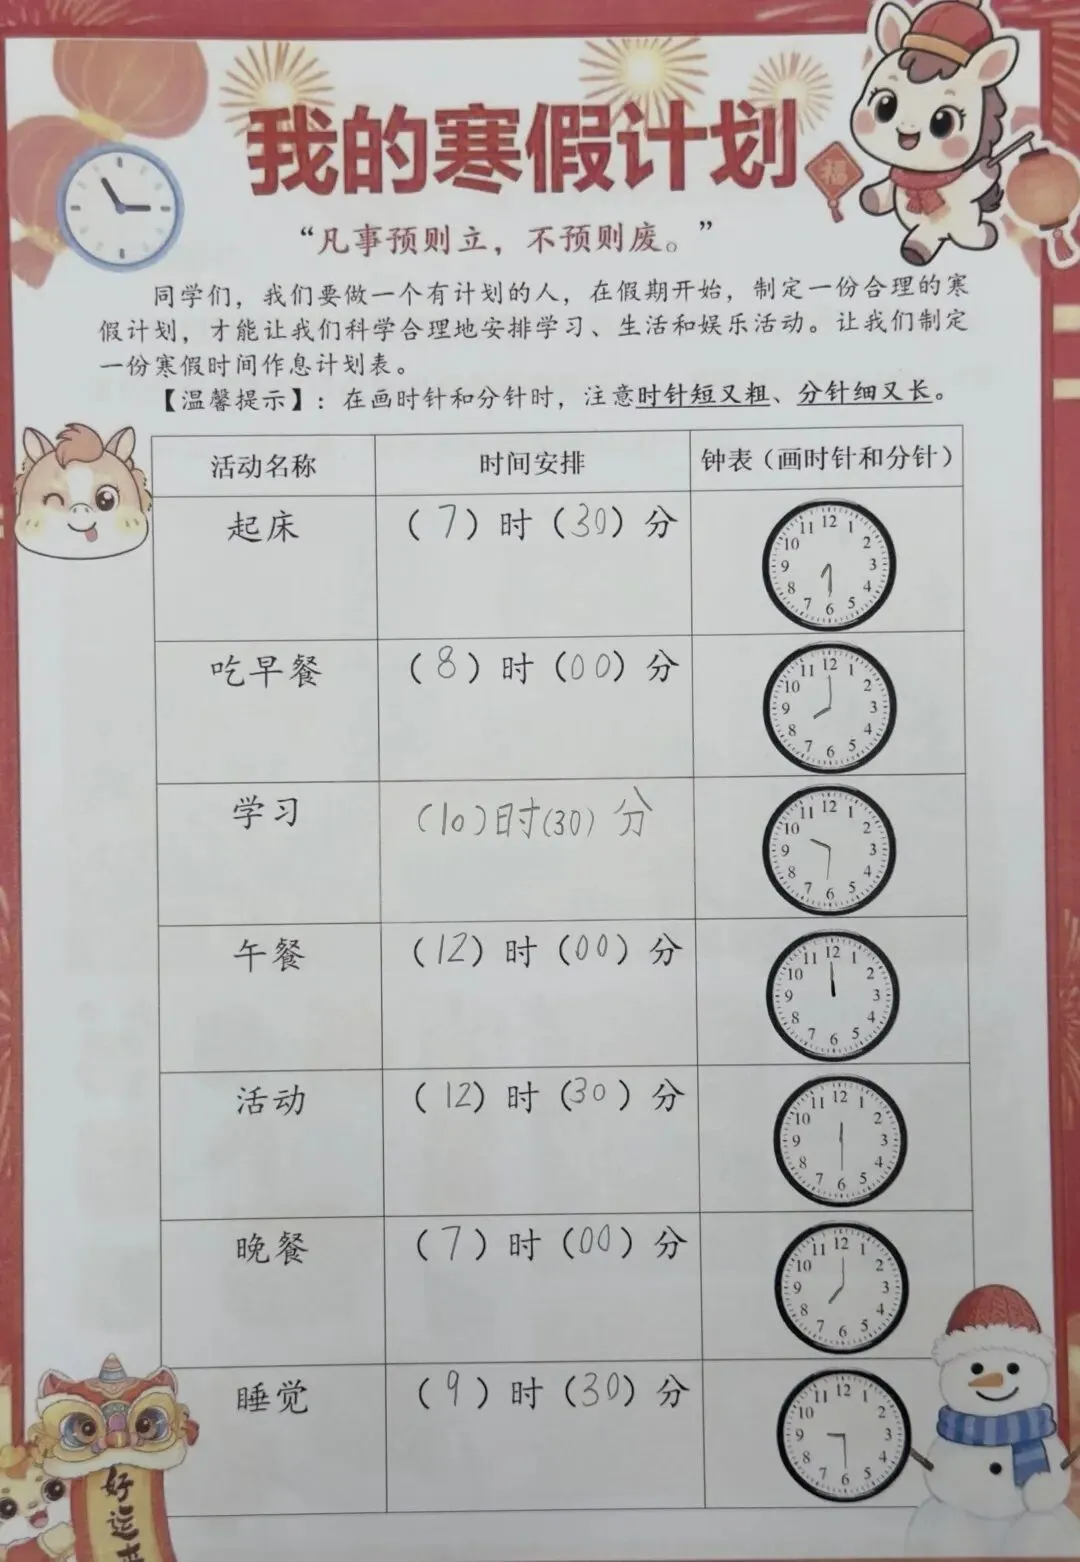 我的寒假计划
福
“凡事预则立，不预则废。”
同学们，我们要做一个有计划的人，在假期开始，制定一份合理的寒
假计划，才能让我们科学合理地安排学习、生活和娱乐活动。让我们制定
一份寒假时间作息计划表。
【温馨提示】：在画时针和分针时，注意时针短又粗、分针细又长。
活动名称 时间安排 钟表（画时针和分针）
起床 （7）时（30）分
12 1 2 3 4 5 6 7 8 9 10 11
吃早餐 （8）时（00）分
12 1 2 3 4 5 6 7 8 9 10 11
学习 （10）时（30）分
12 1 2 3 4 5 6 7 8 9 10 11
午餐 （12）时（00）分
12 1 2 3 4 5 6 7 8 9 10 11
活动 （12）时（30）分
12 1 2 3 4 5 6 7 8 9 10 11
晚餐 （7）时（00）分
12 1 2 3 4 5 6 7 8 9 10 11
睡觉 （9）时（30）分
12 1 2 3 4 5 6 7 8 9 10 11
好运